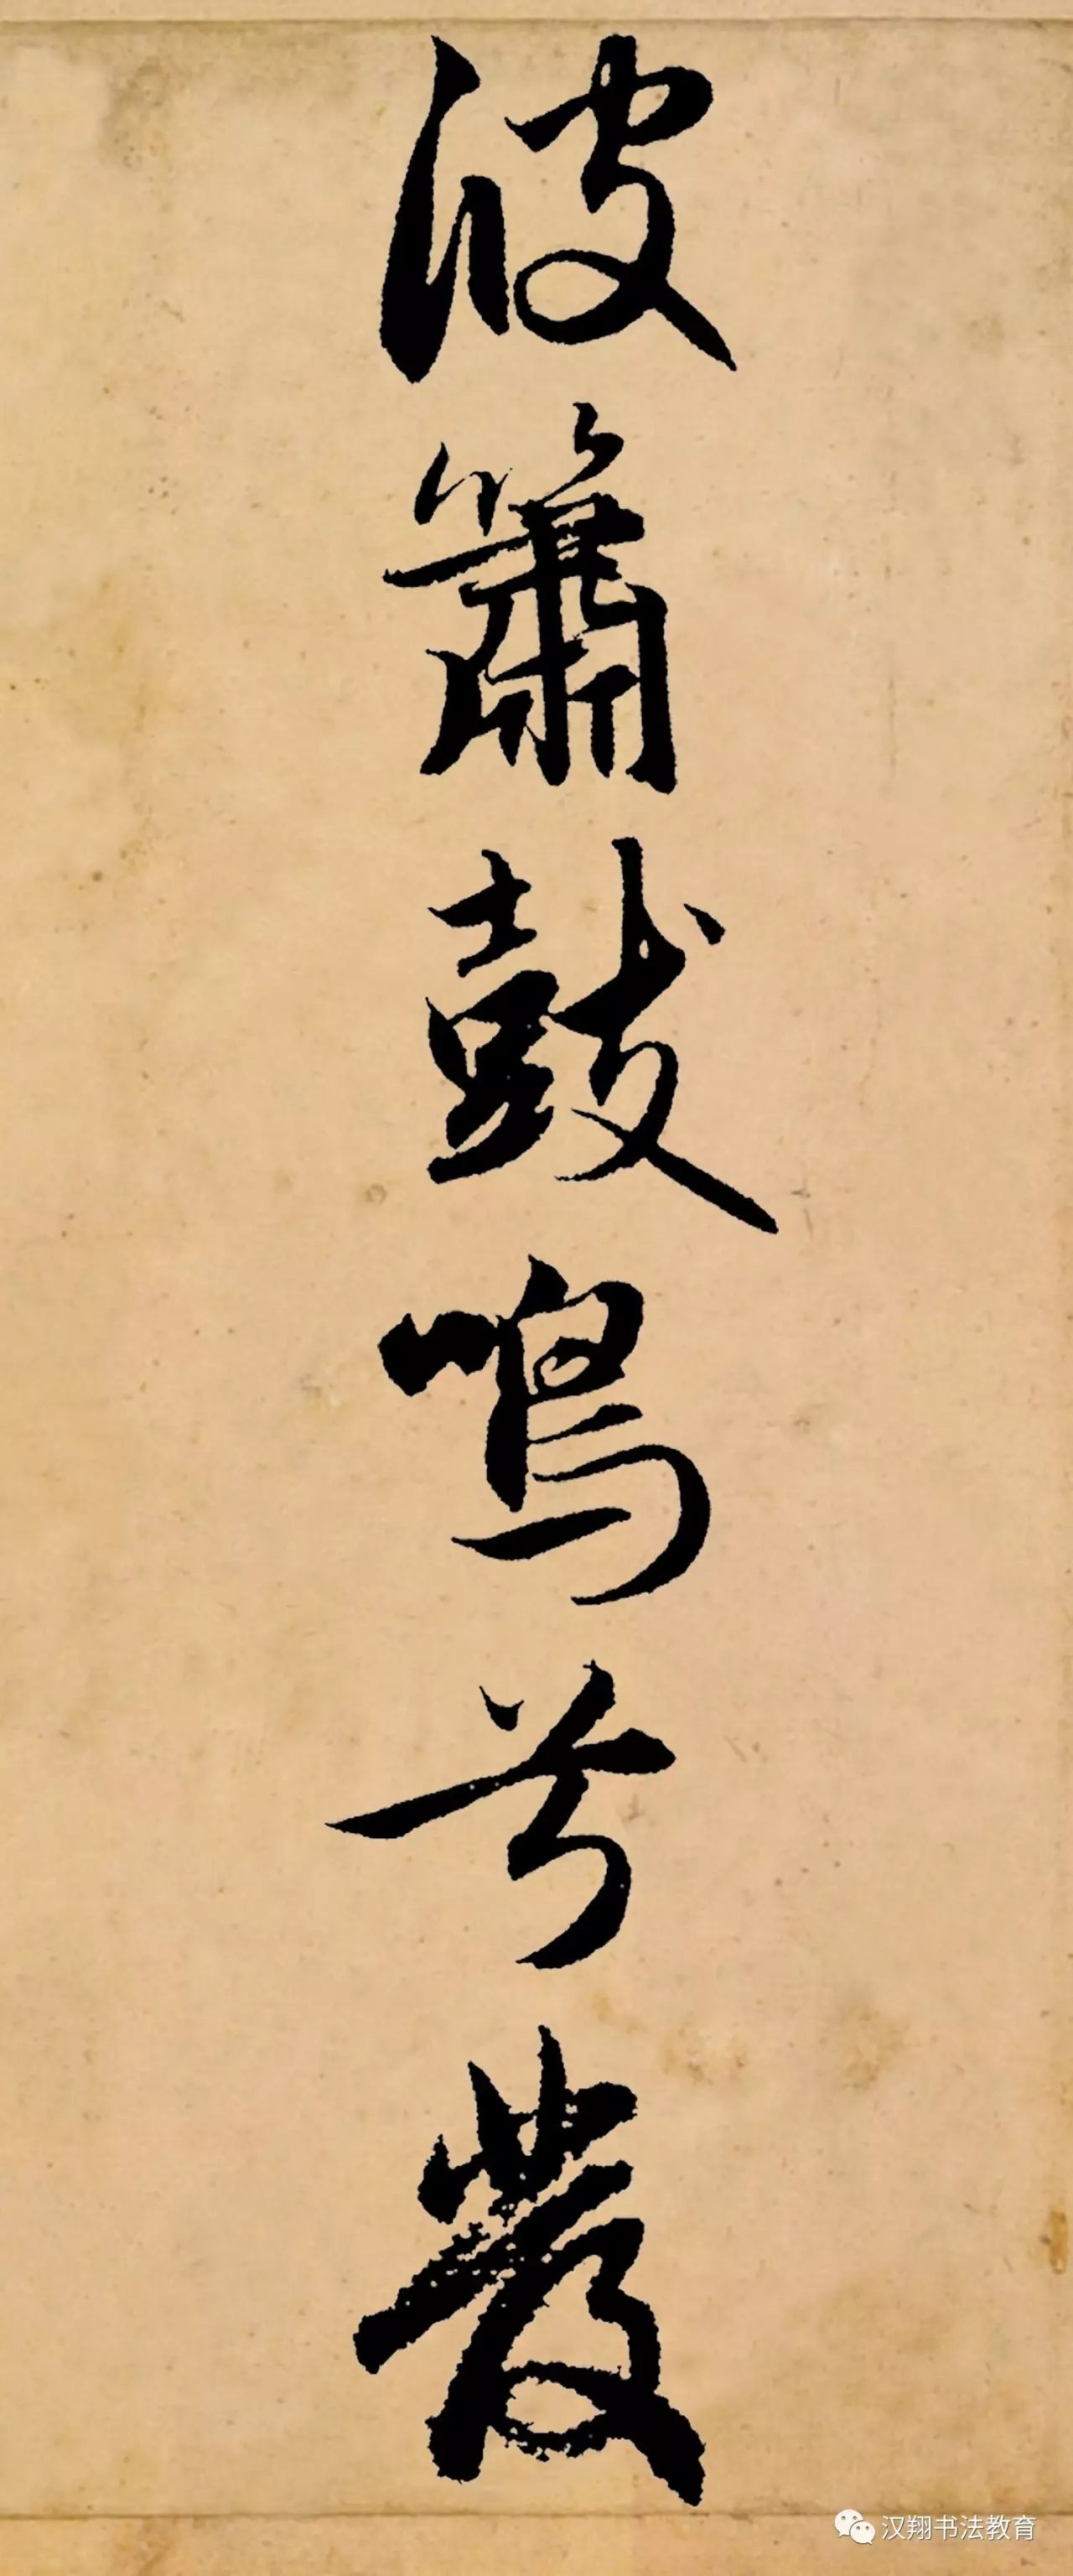 波簫鼓鳴兮發
汉翔书法教育